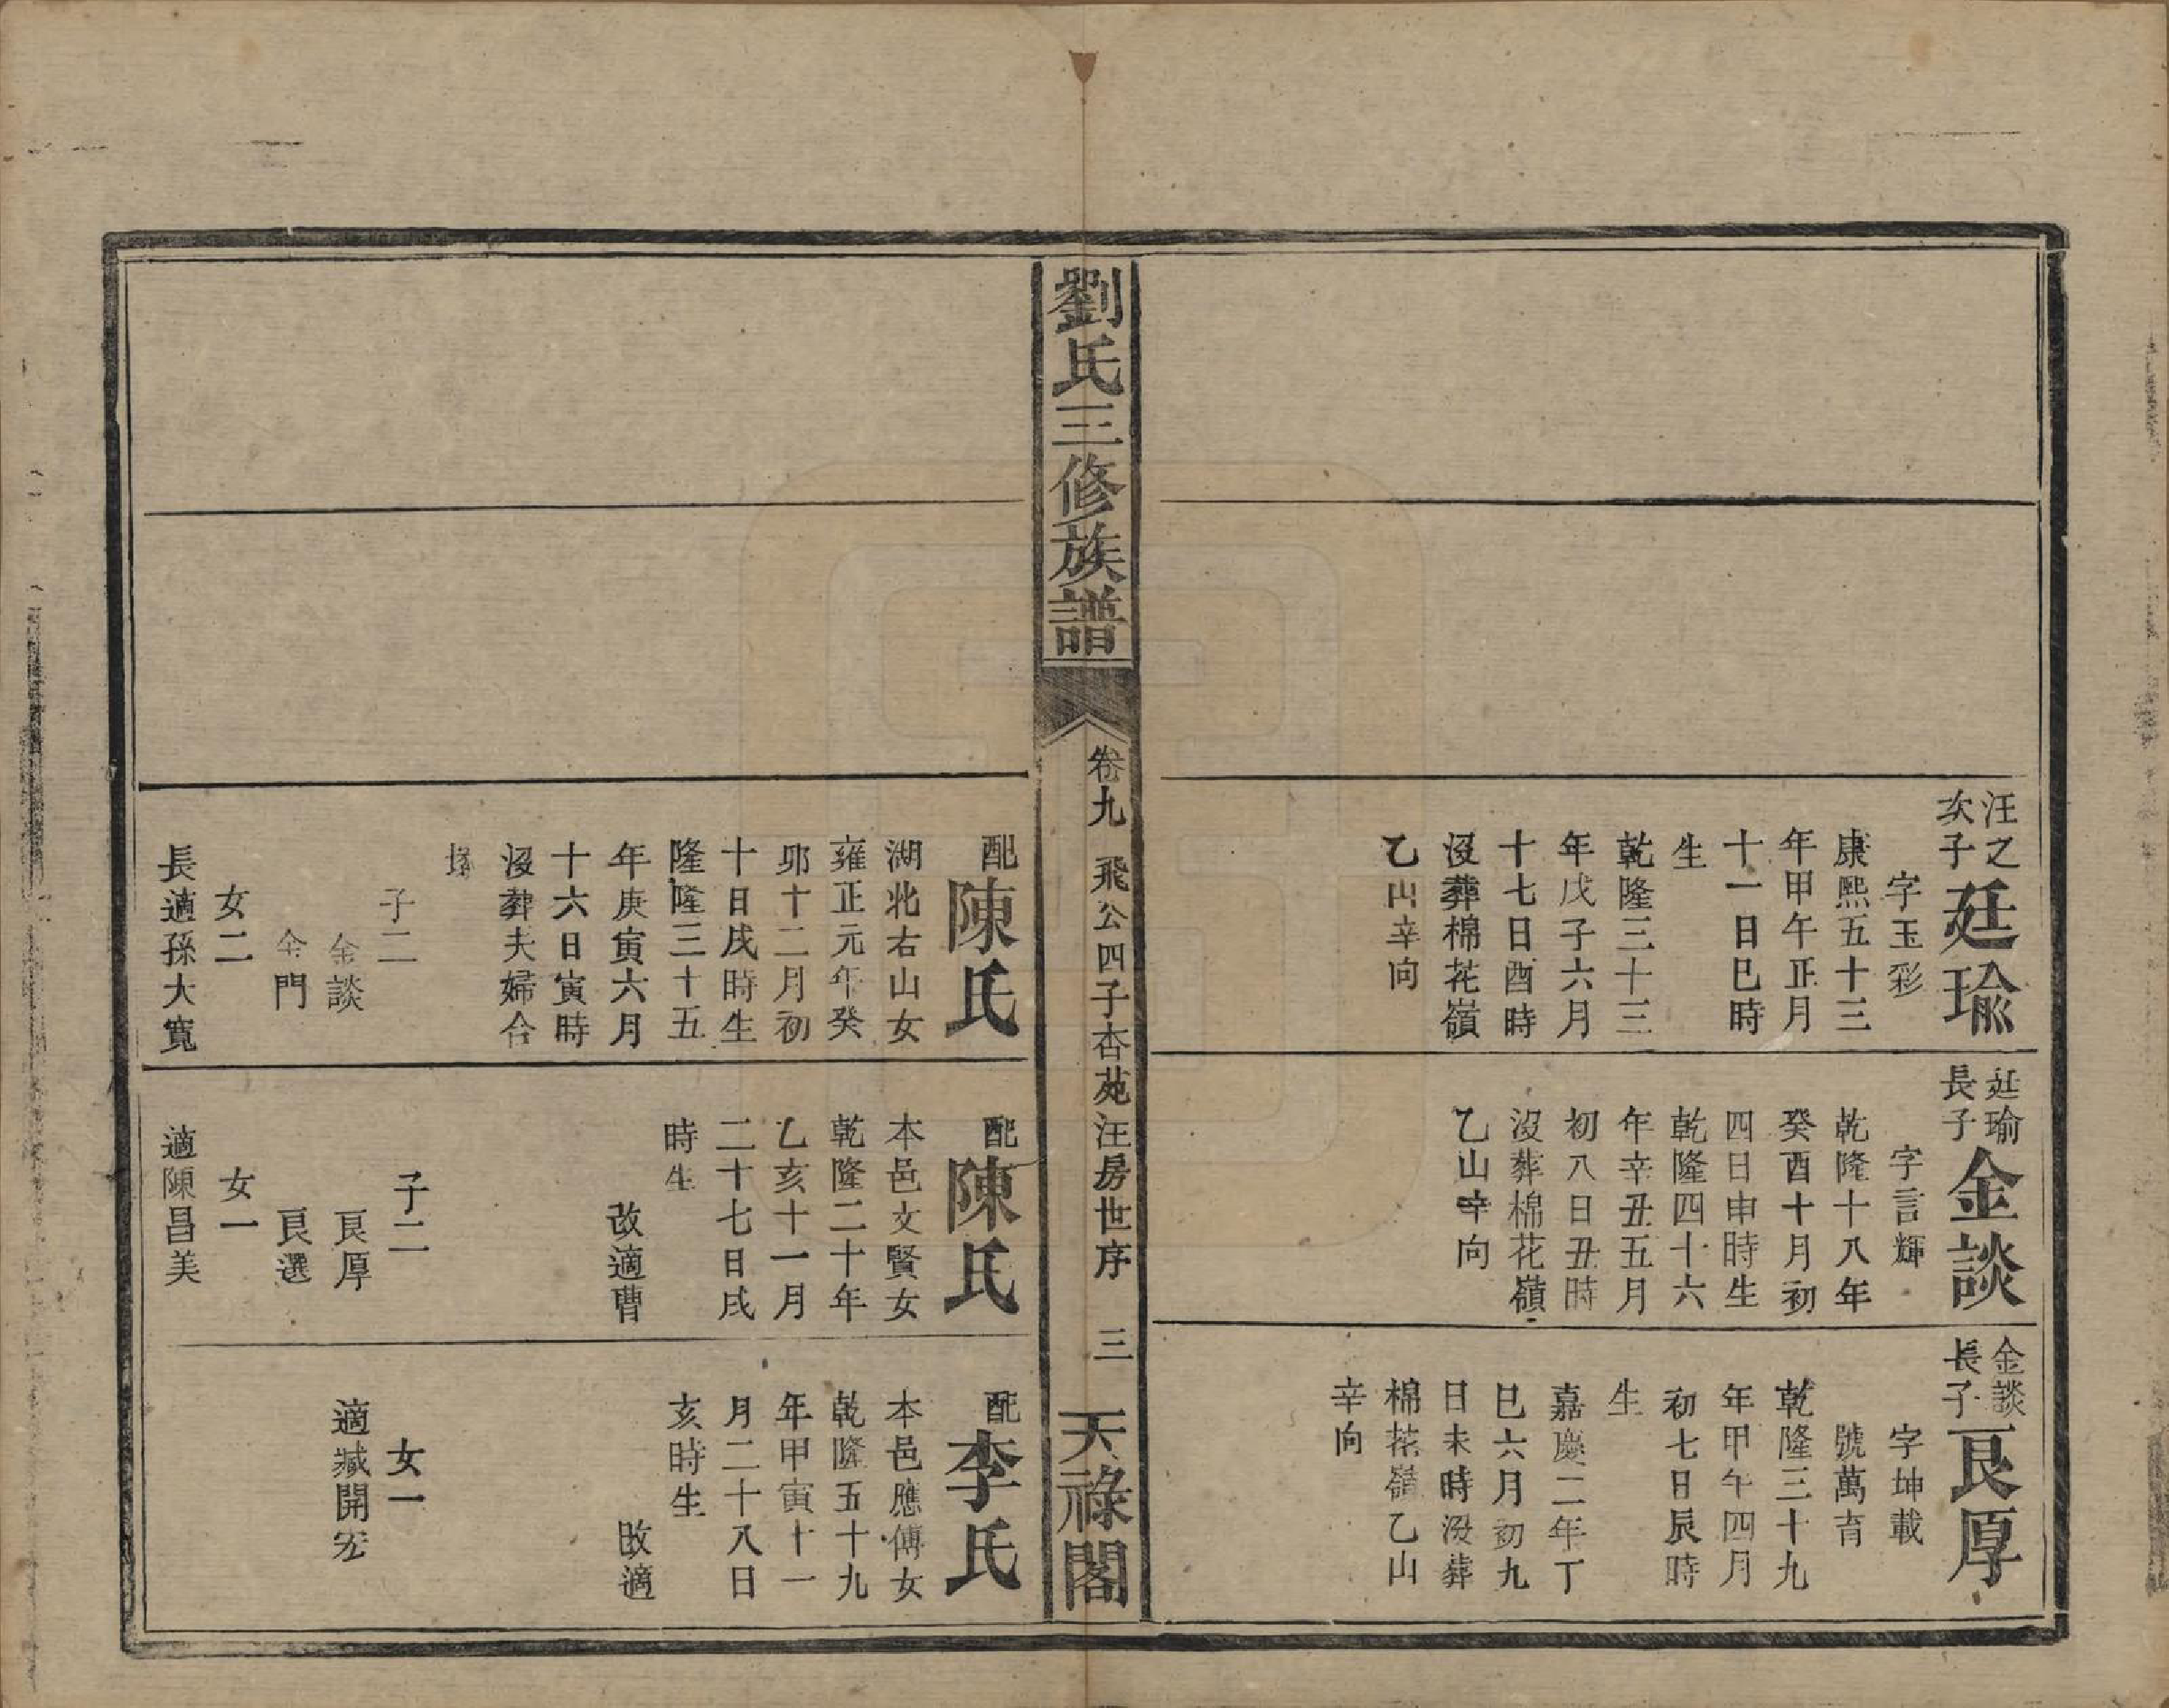 汪之
次子
廷瑜
字玉彩
康熙五十三
年甲午正月
十一日巳時
生
乾隆三十三
年戊子六月
十七日酉時
沒葬棉花嶺
乙山辛向
廷瑜
長子
金談
字言輝
乾隆十八年
癸酉十月初
四日申時生
乾隆四十六
年辛丑五月
初八日丑時
沒葬棉花嶺
乙山辛向
金談
長子
良厚
字坤載
號萬育
乾隆三十九
年甲午四月
初七日辰時
生
嘉慶二年丁
巳六月初九
日未時沒葬
棉花嶺乙山
辛向
劉氏三修族譜
卷九
飛公四子杏苑汪房世序
三
天祿閣
配
陳氏
湖北右山女
雍正元年癸
卯十二月初
十日戌時生
隆隆三十五
年庚寅六月
十六日寅時
沒葬夫婦合
塚
子二
金談
金門
女二
長適孫大寬
配
陳氏
本邑文賢女
乾隆二十年
乙亥十一月
二十七日戌
時生
改適曹
子二
良厚
良選
女一
適陳昌美
配
李氏
本邑應傳女
乾隆五十九
年甲寅十一
月二十八日
亥時生
改適
女一
適臧開宏